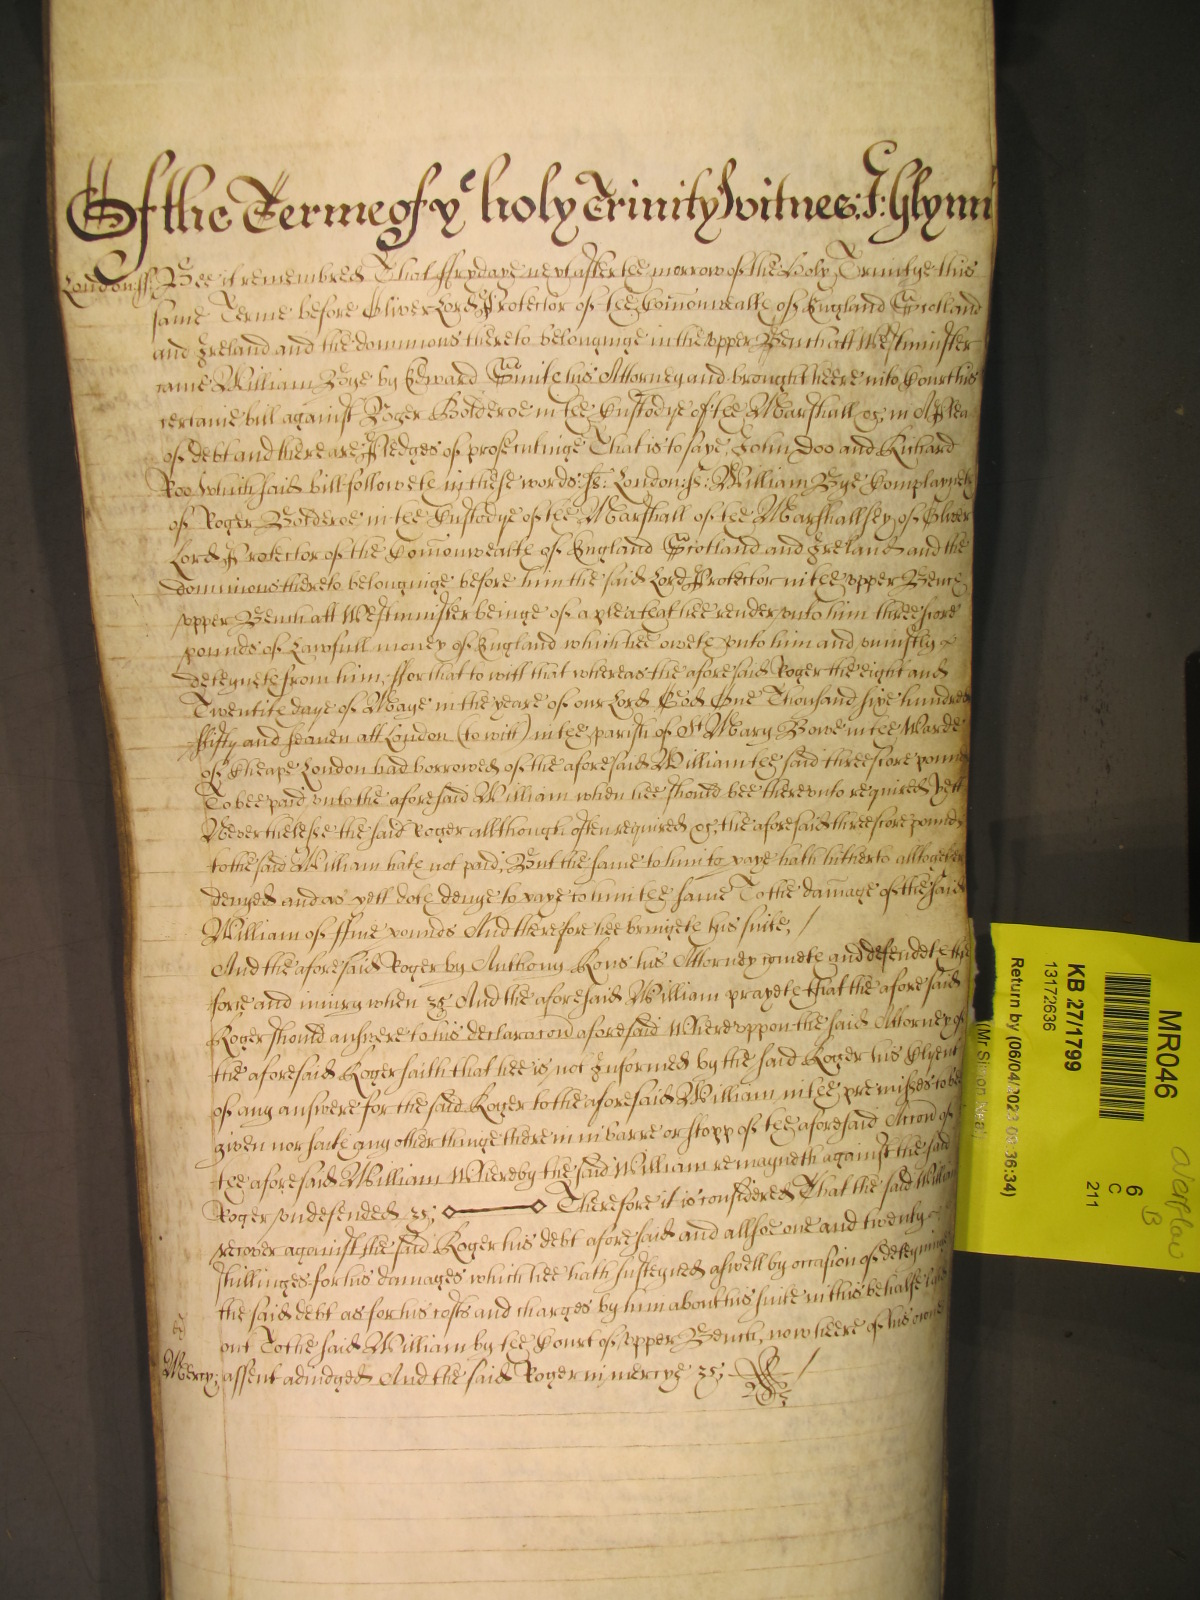 Of the Terme of ye holy Trinity Witnes: J: Glynn
London: ss: Bee it remembred That ffrydaye next after the morrow of the Holy Trinitye this
same Terme before Oliver Lord Protector of the Comonwealth of England Scotland
and Ireland and the dominions thereto belonginge in the upper Bench att Westminster
came William Bye by Edward Smith his Attorney and brought heere into Court his
certaine bill against Roger Bolderoe in the Custodye of the Marshall &c in A Plea
of debt and there are Pledges of prosecutinge That is to saye, John Doo and Richard
Roo which said bill followeth in these words: ss: London: ss: William Bye Complayneth
of Roger Bolderoe in the Custodye of the Marshall of the Marshallsey of Oliver
Lord Protector of the Comonwealth of England Scotland and Ireland and the
dominions thereto belonginge before him the said Lord Protector in the upper Bench
upper Bench att Westminster beinge of a plea that hee render unto him threescore
pounds of Lawfull money of England which hee oweth unto him and uniustly
deteyneth from him, ffor that to witt that whereas the aforesaid Roger the eight and
Twentith daye of Maye in the yeare of our Lord God One Thousand sixe hundred
ffifty and seaven att London (to witt) in the parish of St Mary Bowe in the Warde
of Cheape London had borrowed of the aforesaid William the said threescore pounds
To bee paid unto the aforesaid William when hee should bee thereunto required Yett
Neverthelesse the said Roger allthough often required &c, the aforesaid threescore pounds
to the said William hath not paid, But the same to him to paye hath hitherto alltogether
denyed and as yett doth denye to paye to him the same To the damage of the said
William of ffive pounds And therefore hee bringeth his suite, /
And the aforesaid Roger by Anthony Rous his Attorney cometh and defendeth the
force and iniury when &c And the aforesaid William prayeth that the aforesaid
Roger should answere to his declaracon aforesaid Whereuppon the said Attorney of
the aforesaid Roger saith that hee is not Informed by the said Roger his Clyent
of any answere for the said Roger to the aforesaid William in the premisses to bee
given nor saith any other thinge therein in barre or stopp of the aforesaid Accon of
the aforesaid William Whereby the said William remayneth against the said
Roger undefended &c; Therefore it is considered That the said William
recover against the said Roger his debt aforesaid and allsoe one and twenty
shillinges for his damages which hee hath susteyned aswell by occasion of deteyninge
the said debt as for his costs and charges by him about his suite in this behalfe layd
out To the said William by the Court of upper Bench, now heere of his owne
Mercy; assent adiudged And the said Roger in mercye &c; /
MR046
KB 27/1799
13172636
Return by (06/04/2023 08:36:34)
6
C
211
overflow
B